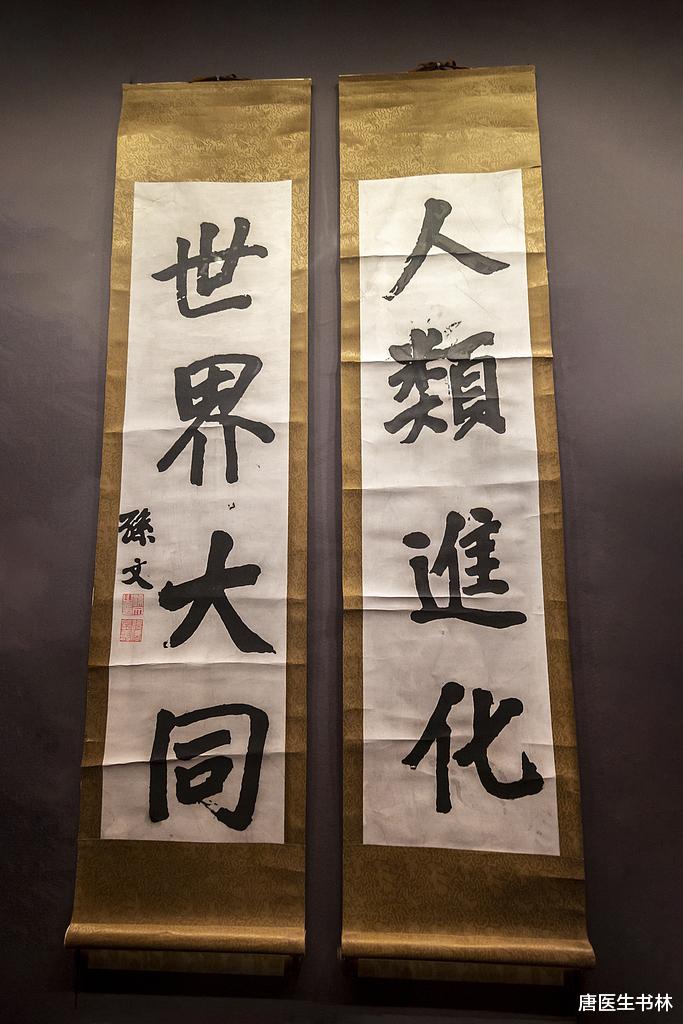 人類進化
世界大同
孫文
唐医生书林